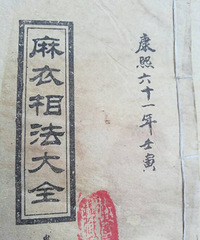 康熙六十一年壬寅
麻衣相法大全